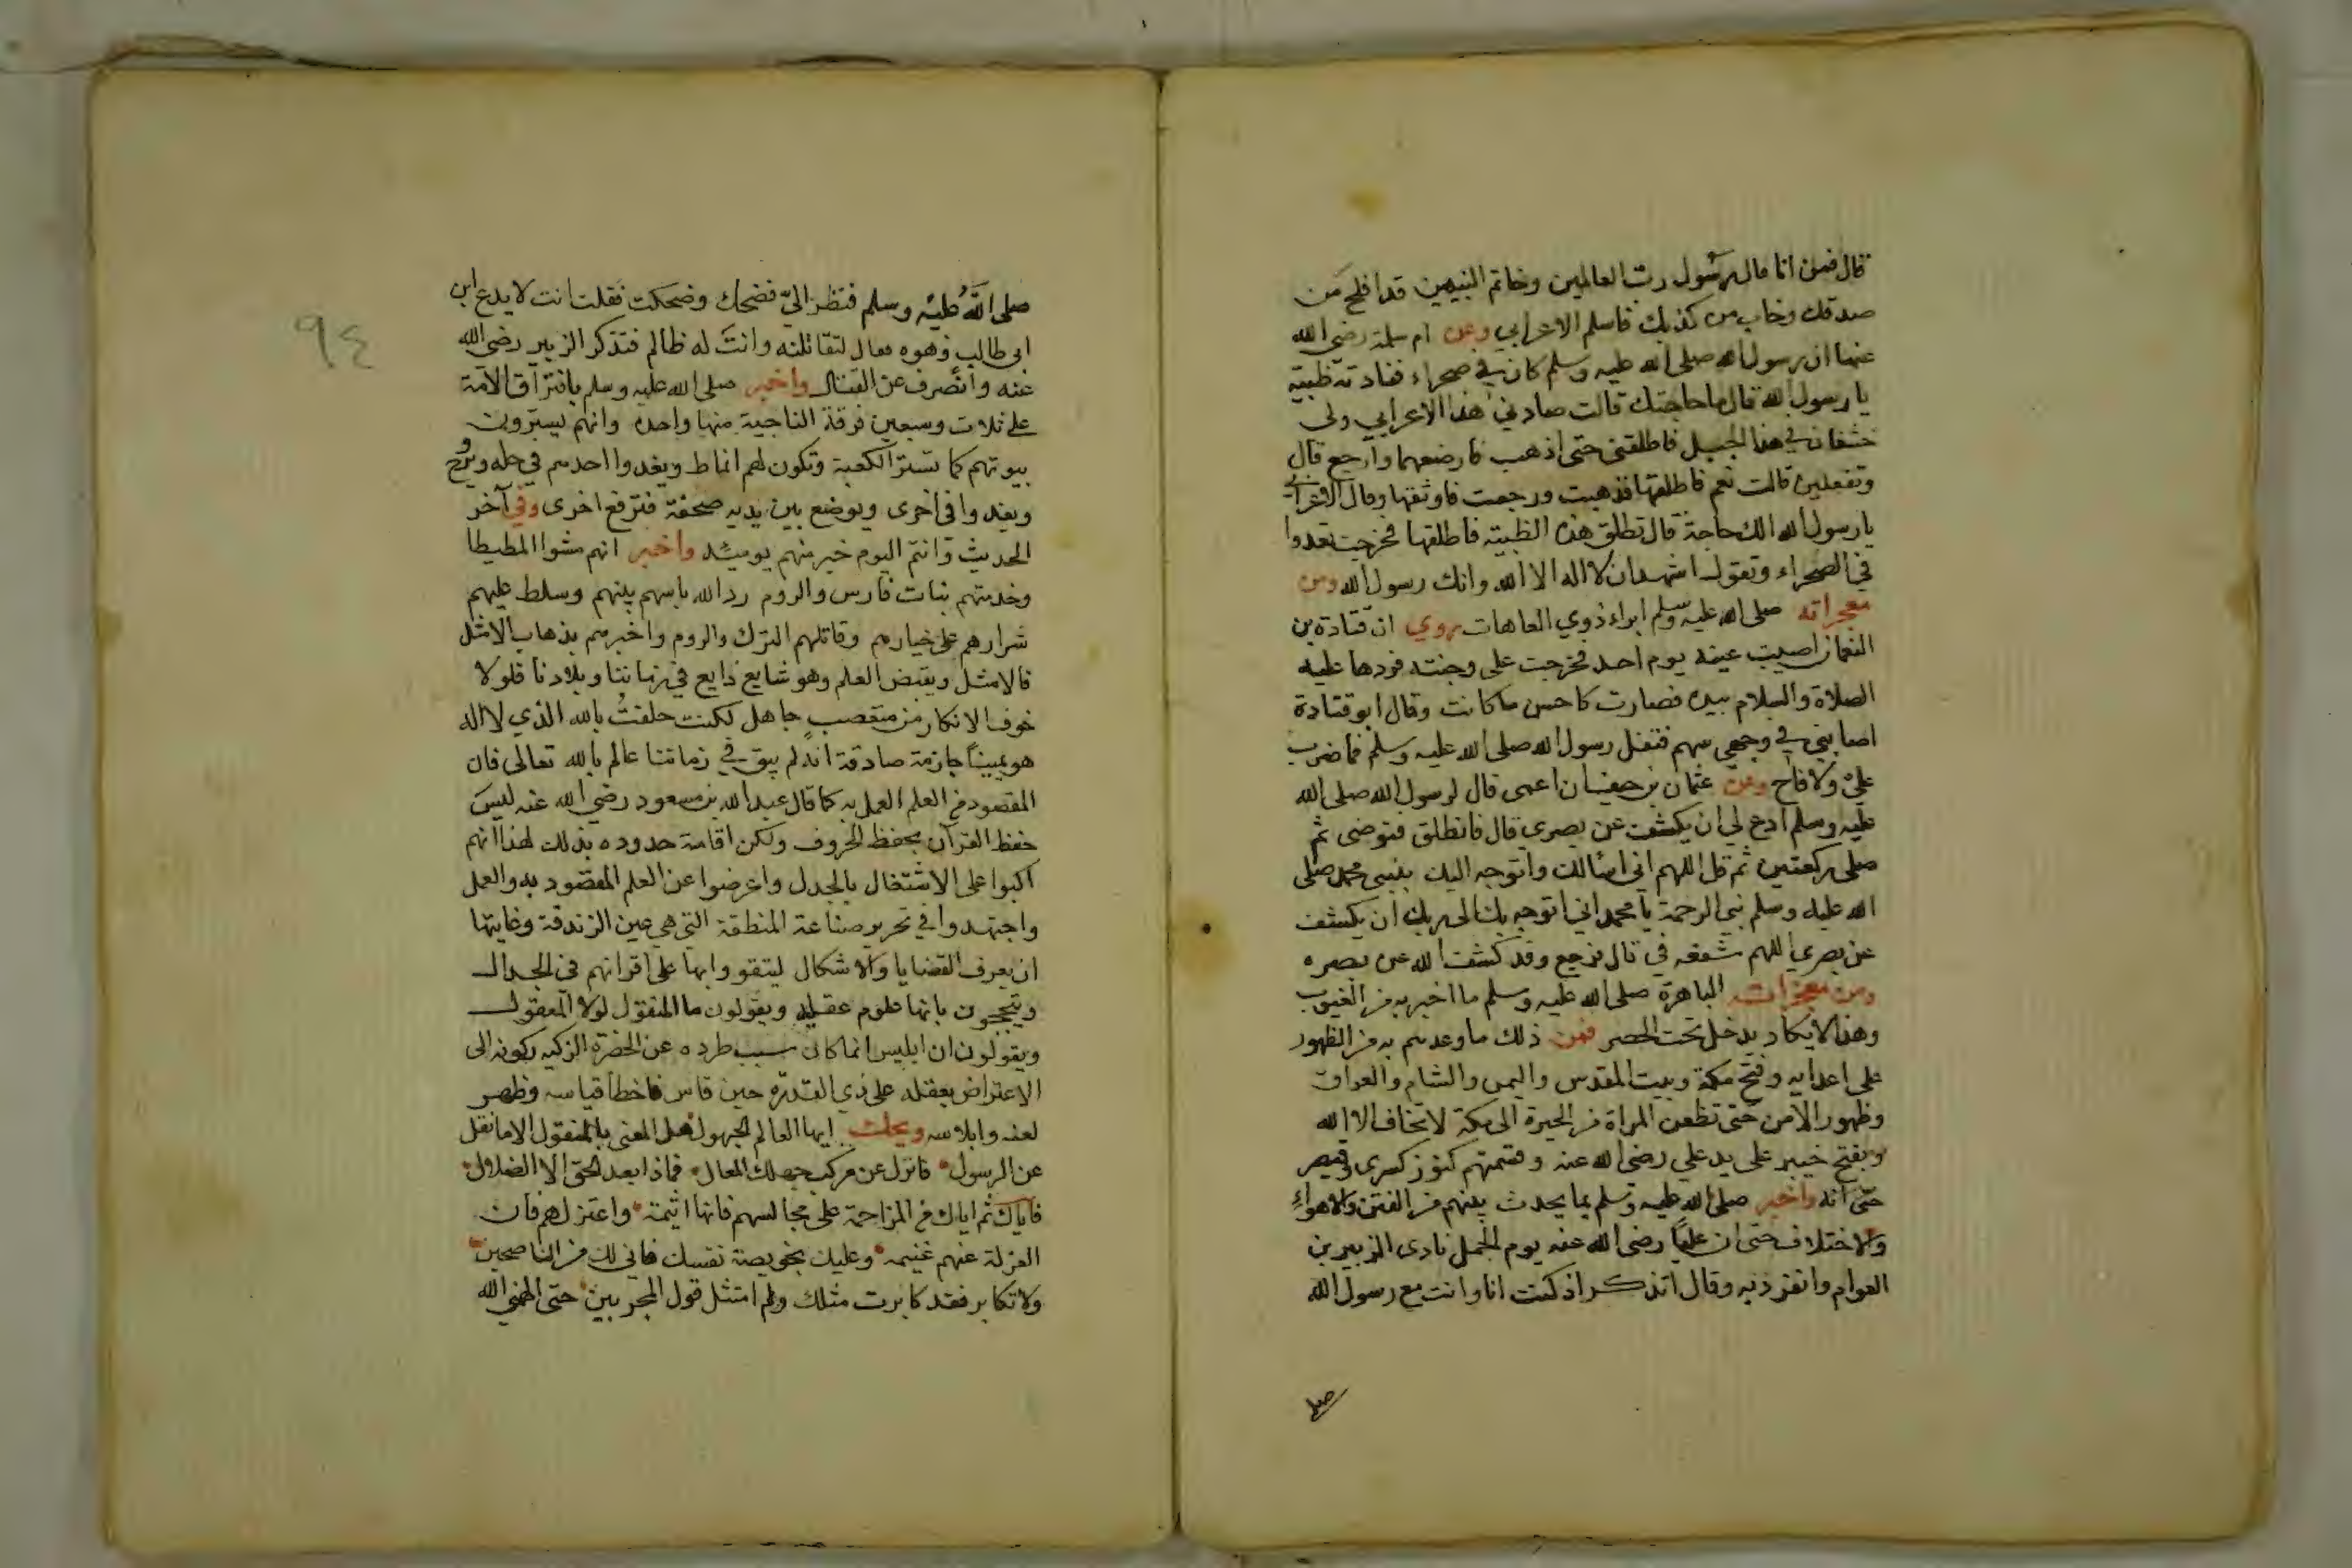 قال فمن انا قال رسول رب العالمين وخاتم النبيين قد افلح من
صدقك وخاب من كذبك فاسلم الاعرابي وعن ام سلمة رضي الله
عنها ان رسول الله صلى الله عليه وسلم كان في صحراء فنادته ظبية
يا رسول الله قال ما حاجتك قالت صادني هذا الاعرابي ولى
خشفان في هذا الجبل فاطلقني حتى اذهب فارضعهما وارجع قال
وتفعلين قالت نعم فاطلقها فذهبت ورجعت فاوثقها وقال الاعرابي
يا رسول الله الك حاجة قال تطلق هذه الظبية فاطلقها فخرجت تعدوا
في الصحراء وتقول اشهد ان لا اله الا الله وانك رسول الله ومن
معجزاته صلى الله عليه وسلم ابراء ذوي العاهات روي ان قتادة بن
النعمان اصيبت عينه يوم احد فخرجت على وجنته فردها عليه
الصلاة والسلام بيده فصارت كاحسن ما كانت وقال ابو قتادة
اصابني في وجهي سهم فتفل رسول الله صلى الله عليه وسلم فما ضرب
علي ولا قاح وعن عثمان بن حنيف ان اعمى قال لرسول الله صلى الله
عليه وسلم ادع لي ان يكشف عن بصري قال فانطلق فتوضى ثم
صلى ركعتين ثم قل اللهم انى اسالك واتوجه اليك بنبيى محمد صلى
الله عليه وسلم نبي الرحمة يا محمد اني اتوجه بك الى ربك ان يكشف
عن بصري اللهم شفعه في قال فرجع وقد كشف الله عن بصره
ومن معجزاته الباهرة صلى الله عليه وسلم ما اخبر به من الغيوب
وهذا لا يكاد يدخل تحت الحصر فمن ذلك ما وعدهم به من الظهور
على اعدايه وفتح مكة وبيت المقدس واليمن والشام والعراق
وظهور الامن حتى تظعن المراة من الحيرة الى مكة لا تخاف الا الله
وبفتح خيبر على يد علي رضى الله عنه وقسمتهم كنوز كسرى وقيصر
حتى انه واخبر صلى الله عليه وسلم بما يحدث بينهم من الفتن والاهواء
والاختلاف حتى ان عليا رضى الله عنه يوم الجمل نادى الزبير بن
العوام وانفرد به وقال اتذكر اذ كنت انا وانت مع رسول الله
صلى
٩٤
صلى اللَّهُ عليه وسلم فنظر اليّ فضحك وضحكت فقلت انت لا يدع ابن
ابى طالب زهوه فقال لتقاتلنه وانت له ظالم فتذكر الزبير رضي الله
عنه وانصرف عن القتال واخبر صلى الله عليه وسلم بافتراق الامة
على ثلاث وسبعين فرقة الناجية منها واحدة وانهم يسترون
بيوتهم كما تستر الكعبة وتكون لهم انماط ويغدوا احدهم في حلة ويروح
ويغدوا في اخرى ويوضع بين يديه صحفة فترفع اخرى وفي آخر
الحديث وانتم اليوم خير منهم يوميئد واخبر انهم مشوا المطيطا
وخدمتهم بنات فارس والروم رد الله باسهم بينهم وسلط عليهم
شرارهم على خيارهم وقاتلهم الترك والروم واخبرهم بذهاب الامثل
فالامثل ويقبض العلم وهو شايع ذايع في زماننا وبلادنا فلولا
خوف الانكار من متعصب جاهل لكنت حلفتُ بالله الذي لا اله
هو يمينًا جازمة صادقة انه لم يبق في زماننا عالم بالله تعالى فان
المقصود من العلم العمل به كما قال عبد الله بن مسعود رضي الله عنه ليس
حفظ القرآن بحفظ الحروف ولكن اقامة حدوده بذلك لهذا انهم
اكبوا على الاشتغال بالجدل واعرضوا عن العلم المقصود به والعمل
واجتهدوا في تحرير صناعة المنطقة التي هي عين الزندقة وغايتها
ان يعرف القضايا والاشكال ليتقووا بها على اقرانهم في الجدال
ويتبجحون بانها علوم عقلية ويقولون ما المنقول لولا المعقول
ويقولون ان ابليس انما كان سبب طرده عن الحضرة الزكيه ركونه الى
الاعتراض بعقله على ذي القدرة حين قاس فاخطا قياسه وظهر
لعنه وابلاسه ويحك ايها العالم الجهول هل المعنى بالمنقول الا ما نقل
عن الرسول فانزل عن مركب جهلك المعال فماذا بعد الحق الا الضلال
فاياك ثم اياك من المزاحمة على مجالسهم فانها اثيمة واعتزلهم فان
العزلة عنهم غنيمه وعليك بخويصة نفسك فاني لك من الناصحين
ولا تكابر فقد كابرت مثلك ولم امتثل قول المجربين حتى الهمني الله